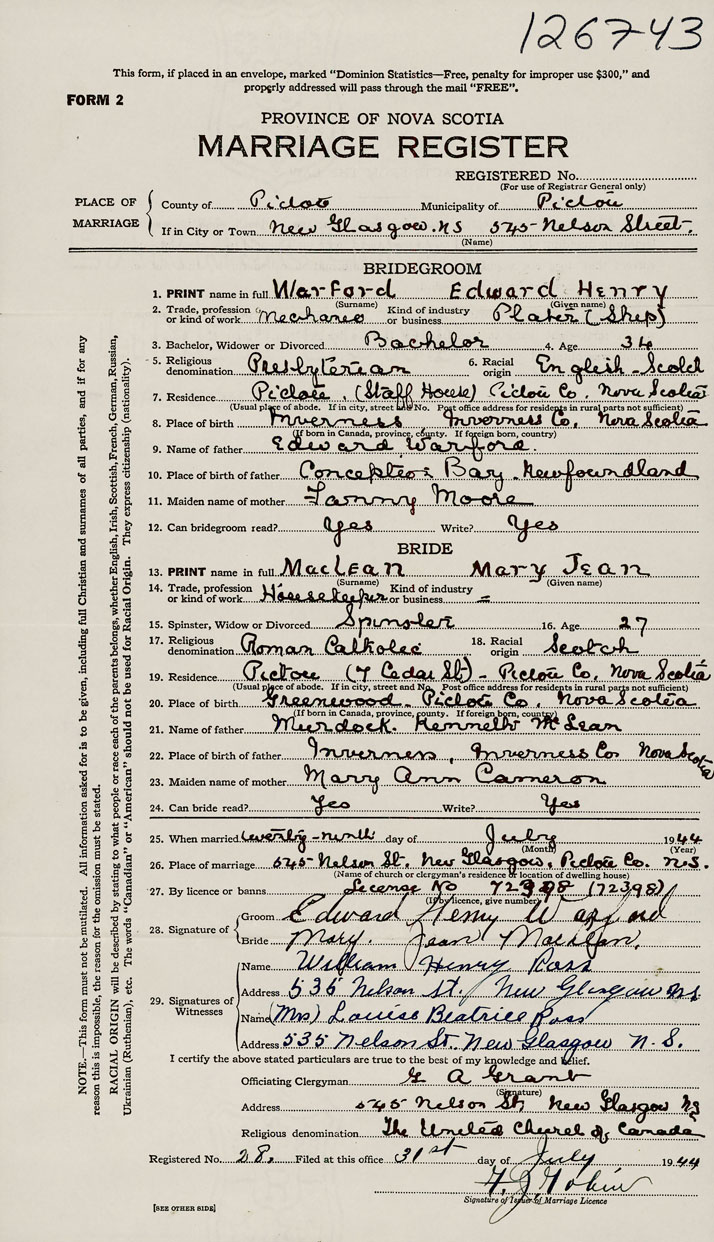 126743
This form, if placed in an envelope, marked “Dominion Statistics—Free, penalty for improper use $300,” and
properly addressed will pass through the mail “FREE”.
FORM 2
PROVINCE OF NOVA SCOTIA
MARRIAGE REGISTER
REGISTERED No.
(For use of Registrar General only)
PLACE OF MARRIAGE
County of Pictou Municipality of Pictou
If in City or Town New Glasgow. NS 545 Nelson Street.
(Name)
BRIDEGROOM
1. PRINT name in full Warford Edward Henry
(Surname) (Given name)
2. Trade, profession or kind of work Mechanic Kind of industry or business Plater (Ship)
3. Bachelor, Widower or Divorced Bachelor 4. Age 34
5. Religious denomination Presbyterian 6. Racial origin English-Scotch
7. Residence Pictou, (Staff House) Pictou Co, Nova Scotia
(Usual place of abode. If in city, street and No. Post office address for residents in rural parts not sufficient)
8. Place of birth Inverness, Inverness Co, Nova Scotia
(If born in Canada, province, county. If foreign born, country)
9. Name of father Edward Warford.
10. Place of birth of father Conception Bay. Newfoundland
11. Maiden name of mother Fanny Moore
12. Can bridegroom read? Yes Write? Yes
BRIDE
13. PRINT name in full MacLean Mary Jean
(Surname) (Given name)
14. Trade, profession or kind of work Housekeeper Kind of industry or business –
15. Spinster, Widow or Divorced Spinster 16. Age 27
17. Religious denomination Roman Catholic 18. Racial origin Scotch
19. Residence Pictou (7 Cedar St) - Pictou Co, Nova Scotia
(Usual place of abode. If in city, street and No. Post office address for residents in rural parts not sufficient)
20. Place of birth Greenwood Pictou Co, Nova Scotia
(If born in Canada, province, county. If foreign born, country)
21. Name of father Murdock. Kenneth McLean
22. Place of birth of father Inverness, Inverness Co Nova Scotia
23. Maiden name of mother Mary Ann Cameron
24. Can bride read? Yes Write? Yes
25. When married twenty-ninth day of July 1944
(Month) (Year)
26. Place of marriage 545 Nelson St. New Glasgow, Pictou Co. N.S.
(Name of church or clergyman's residence or location of dwelling house)
27. By licence or banns License No 72398 (72398)
(If by licence, give number)
28. Signature of
Groom Edward Henry Warford
Bride Mary. Jean MacLean.
29. Signatures of Witnesses
Name William Henry Ross
Address 535 Nelson St. New Glasgow NS
Name (Mrs) Louise Beatrice Ross
Address 535 Nelson St. New Glasgow N.S.
I certify the above stated particulars are true to the best of my knowledge and belief.
Officiating Clergyman G A Grant
(Signature)
Address 545 Nelson St, New Glasgow NS
Religious denomination The United Church of Canada
Registered No. 28. Filed at this office 31st day of July 1944
Signature of Issuer of Marriage Licence
[SEE OTHER SIDE]
NOTE.—This form must not be mutilated. All information asked for is to be given, including full Christian and surnames of all parties, and if for any
reason this is impossible, the reason for the omission must be stated.
RACIAL ORIGIN will be described by stating to what people or race each of the parents belongs, whether English, Irish, Scottish, French, German, Russian,
Ukrainian (Ruthenian), etc. The words “Canadian” or “American” should not be used for Racial Origin. They express citizenship (nationality).